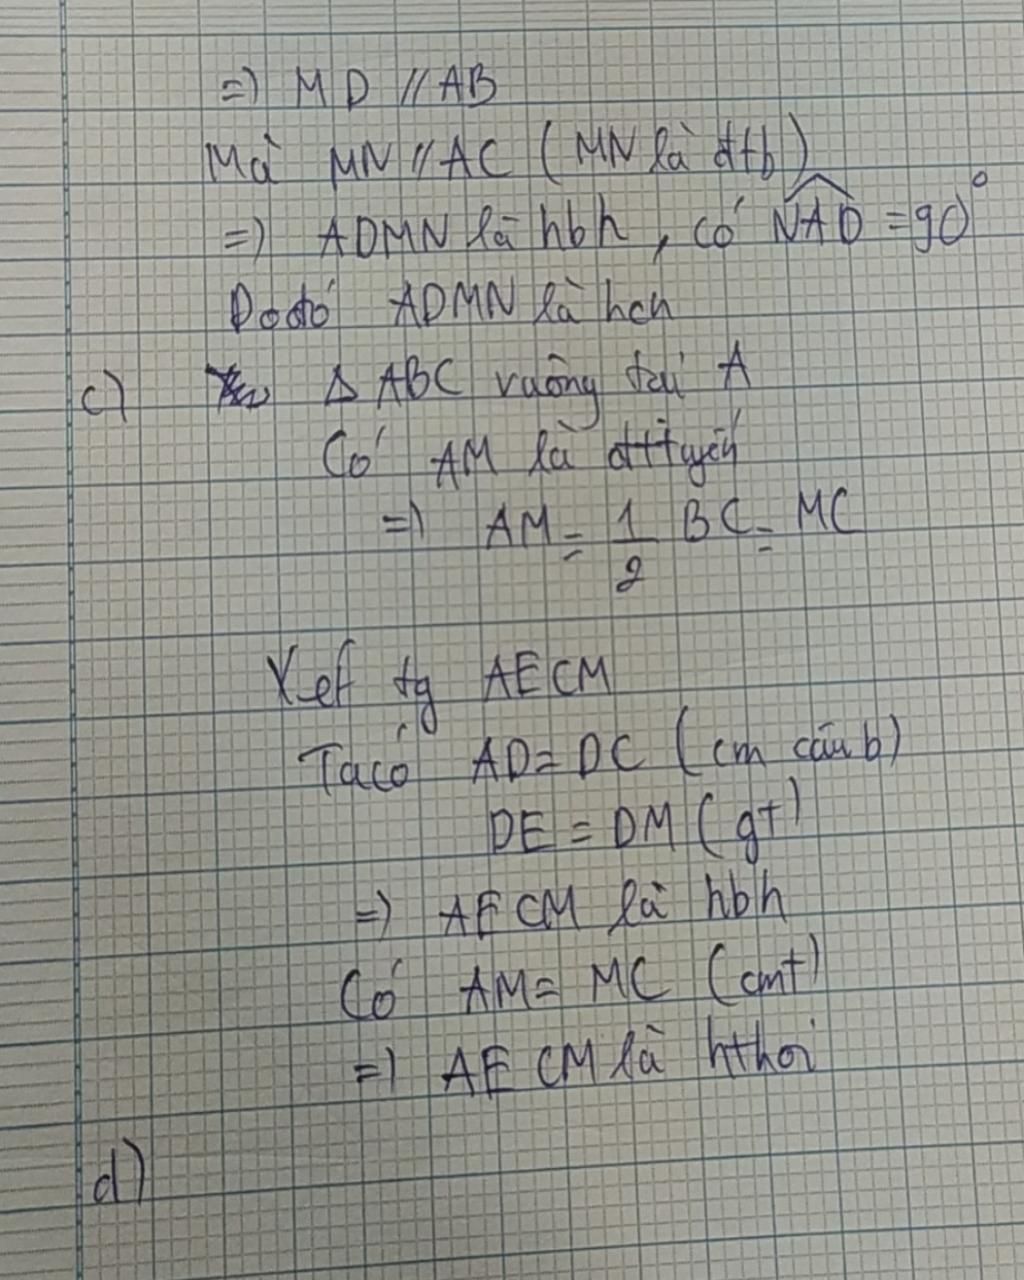 =) MD // AB
Mà MN // AC (MN là đtb)
=) ADMN là hbh, có NAD = 90°
Do đó ADMN là hcn
c) Δ ABC vuông tại A
Có AM là đttuyến
=) AM = 1/2 BC = MC
Xét tg AECM
Ta có AD = DC (cm câu b)
DE = DM (gt)
=) AECM là hbh
Có AM = MC (cmt)
=) AECM là hthoi
d)